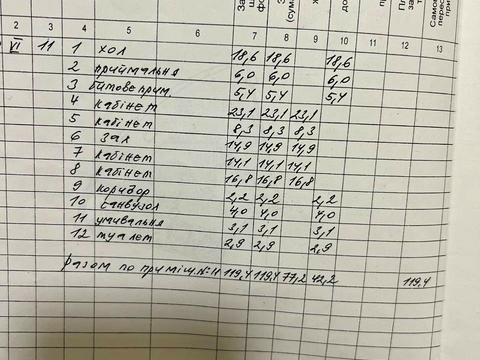 2 3 4 5 6 7 8 9 10 11 12 13
VI 11 1 хол 18,6 18,6 18,6
2 приймальня 6,0 6,0 6,0
3 битове прим. 5,4 5,4 5,4
4 кабінет 23,1 23,1 23,1
5 кабінет 8,3 8,3 8,3
6 зал 14,9 14,9 14,9
7 кабінет 14,1 14,1 14,1
8 кабінет 16,8 16,8 16,8
9 коридор 2,2 2,2 2,2
10 санвузол 4,0 4,0 4,0
11 умивальня 3,1 3,1 3,1
12 туалет 2,9 2,9 2,9
разом по приміщ. №11 119,4 119,4 77,2 42,2 119,4